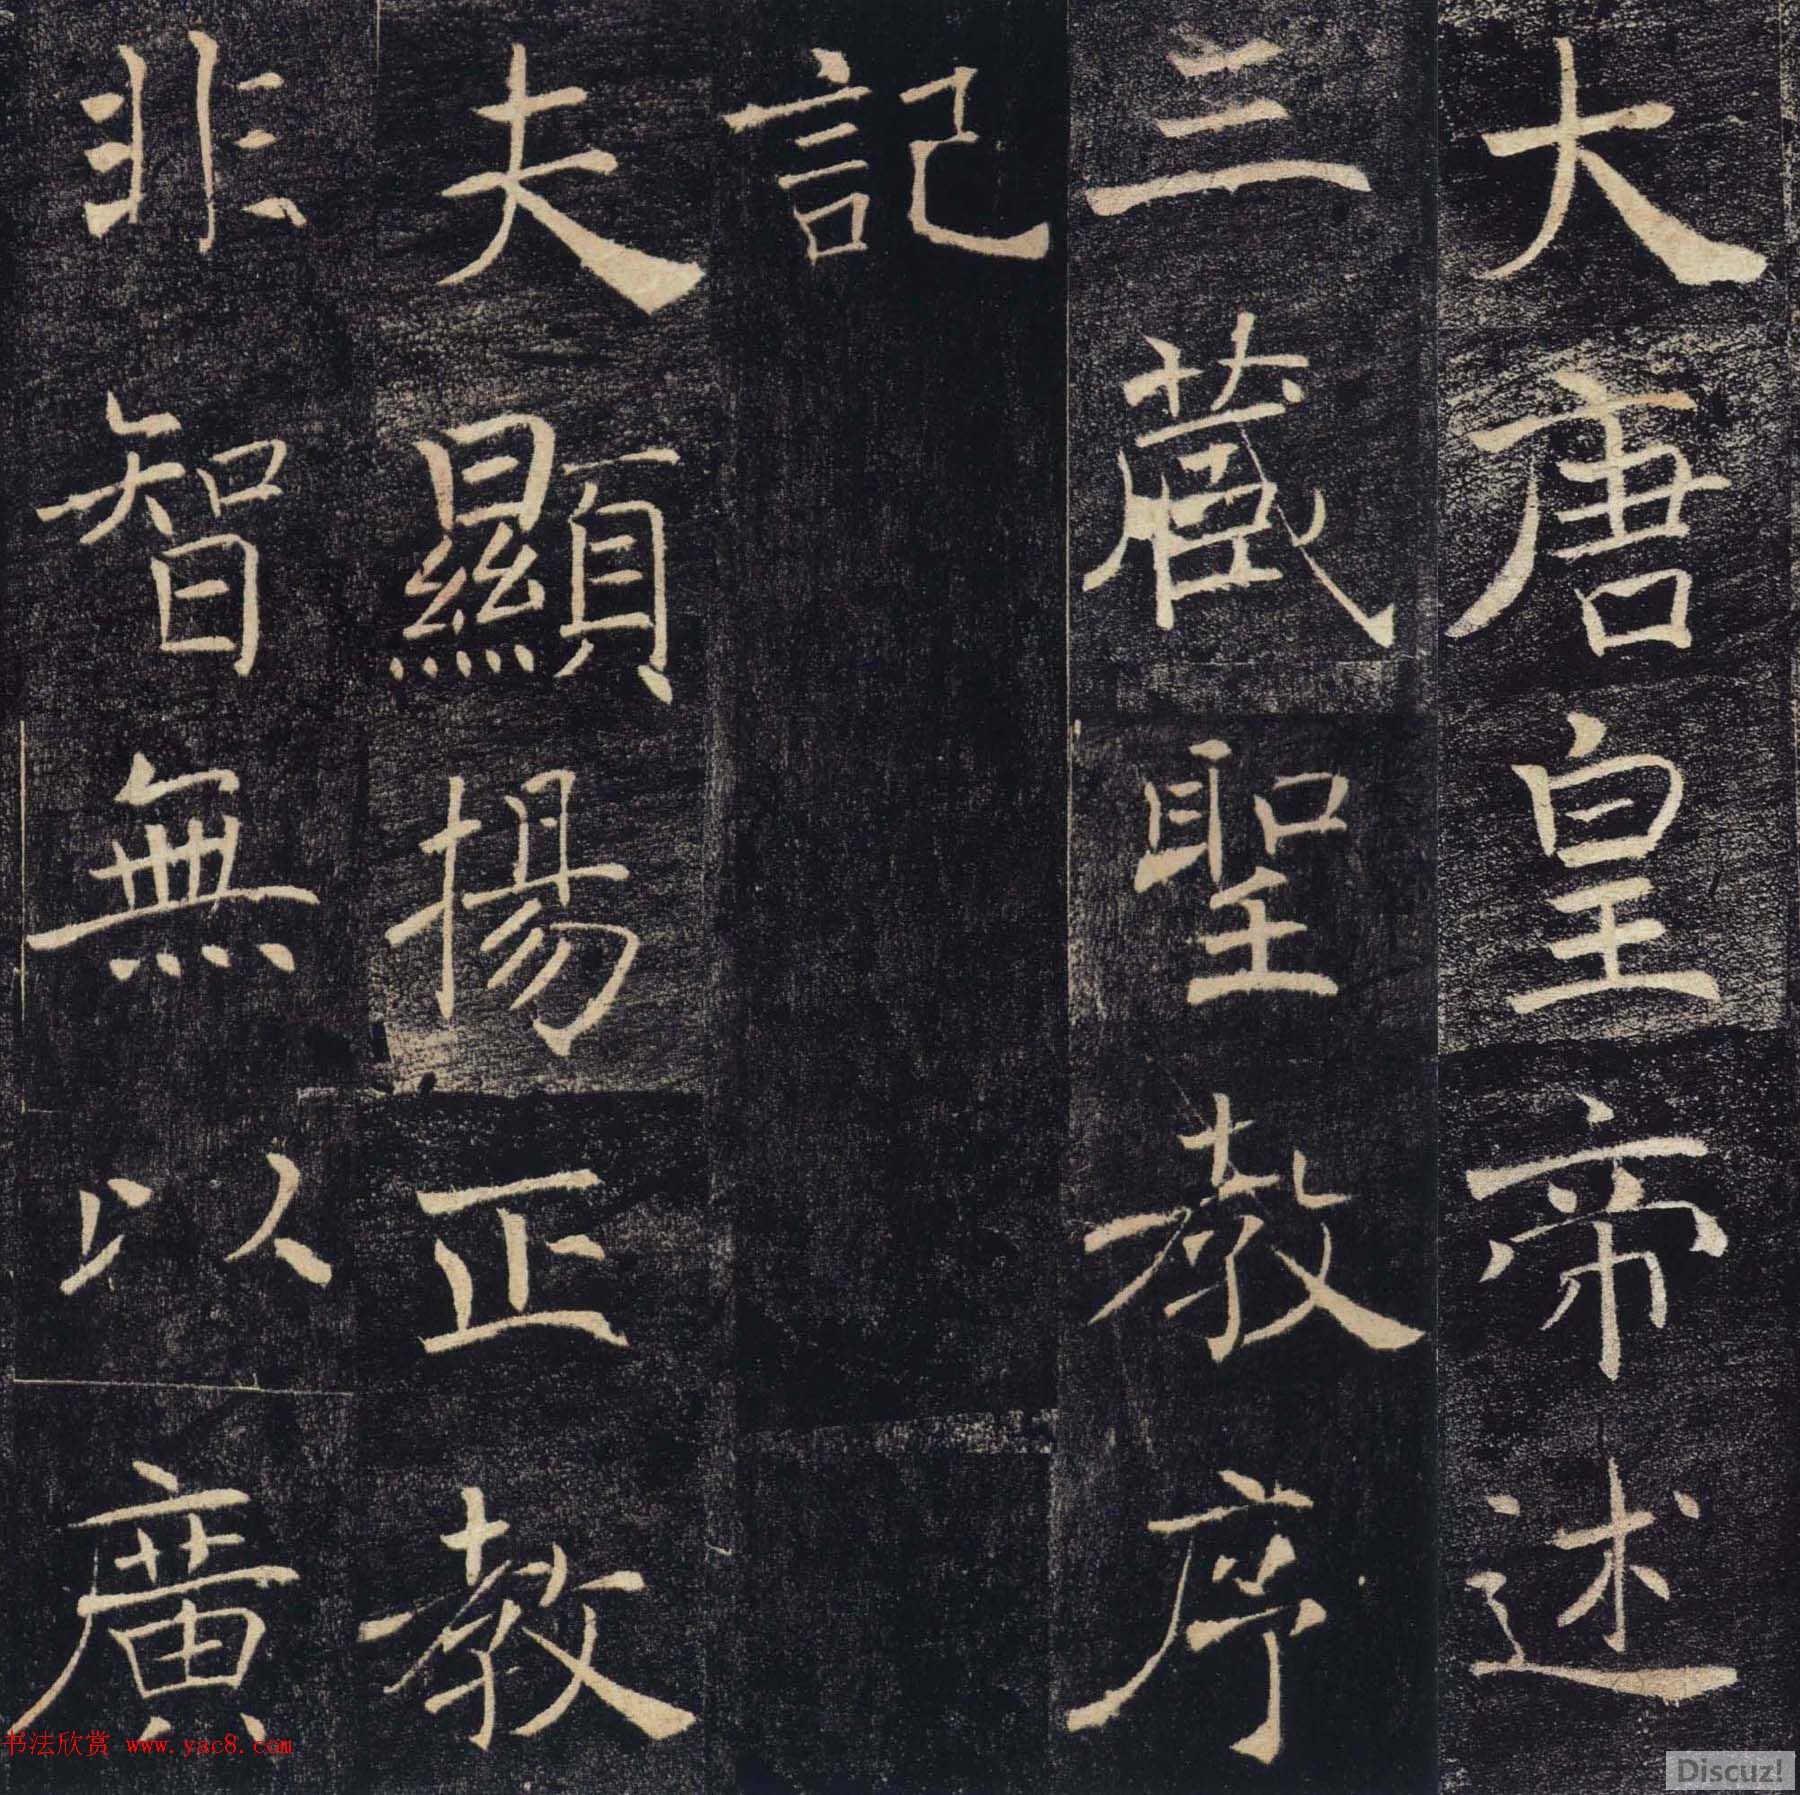 大唐皇帝述
三藏聖教序
記
夫顯揚正教
非智無以廣
书法欣赏 www.yac8.com
Discuz!